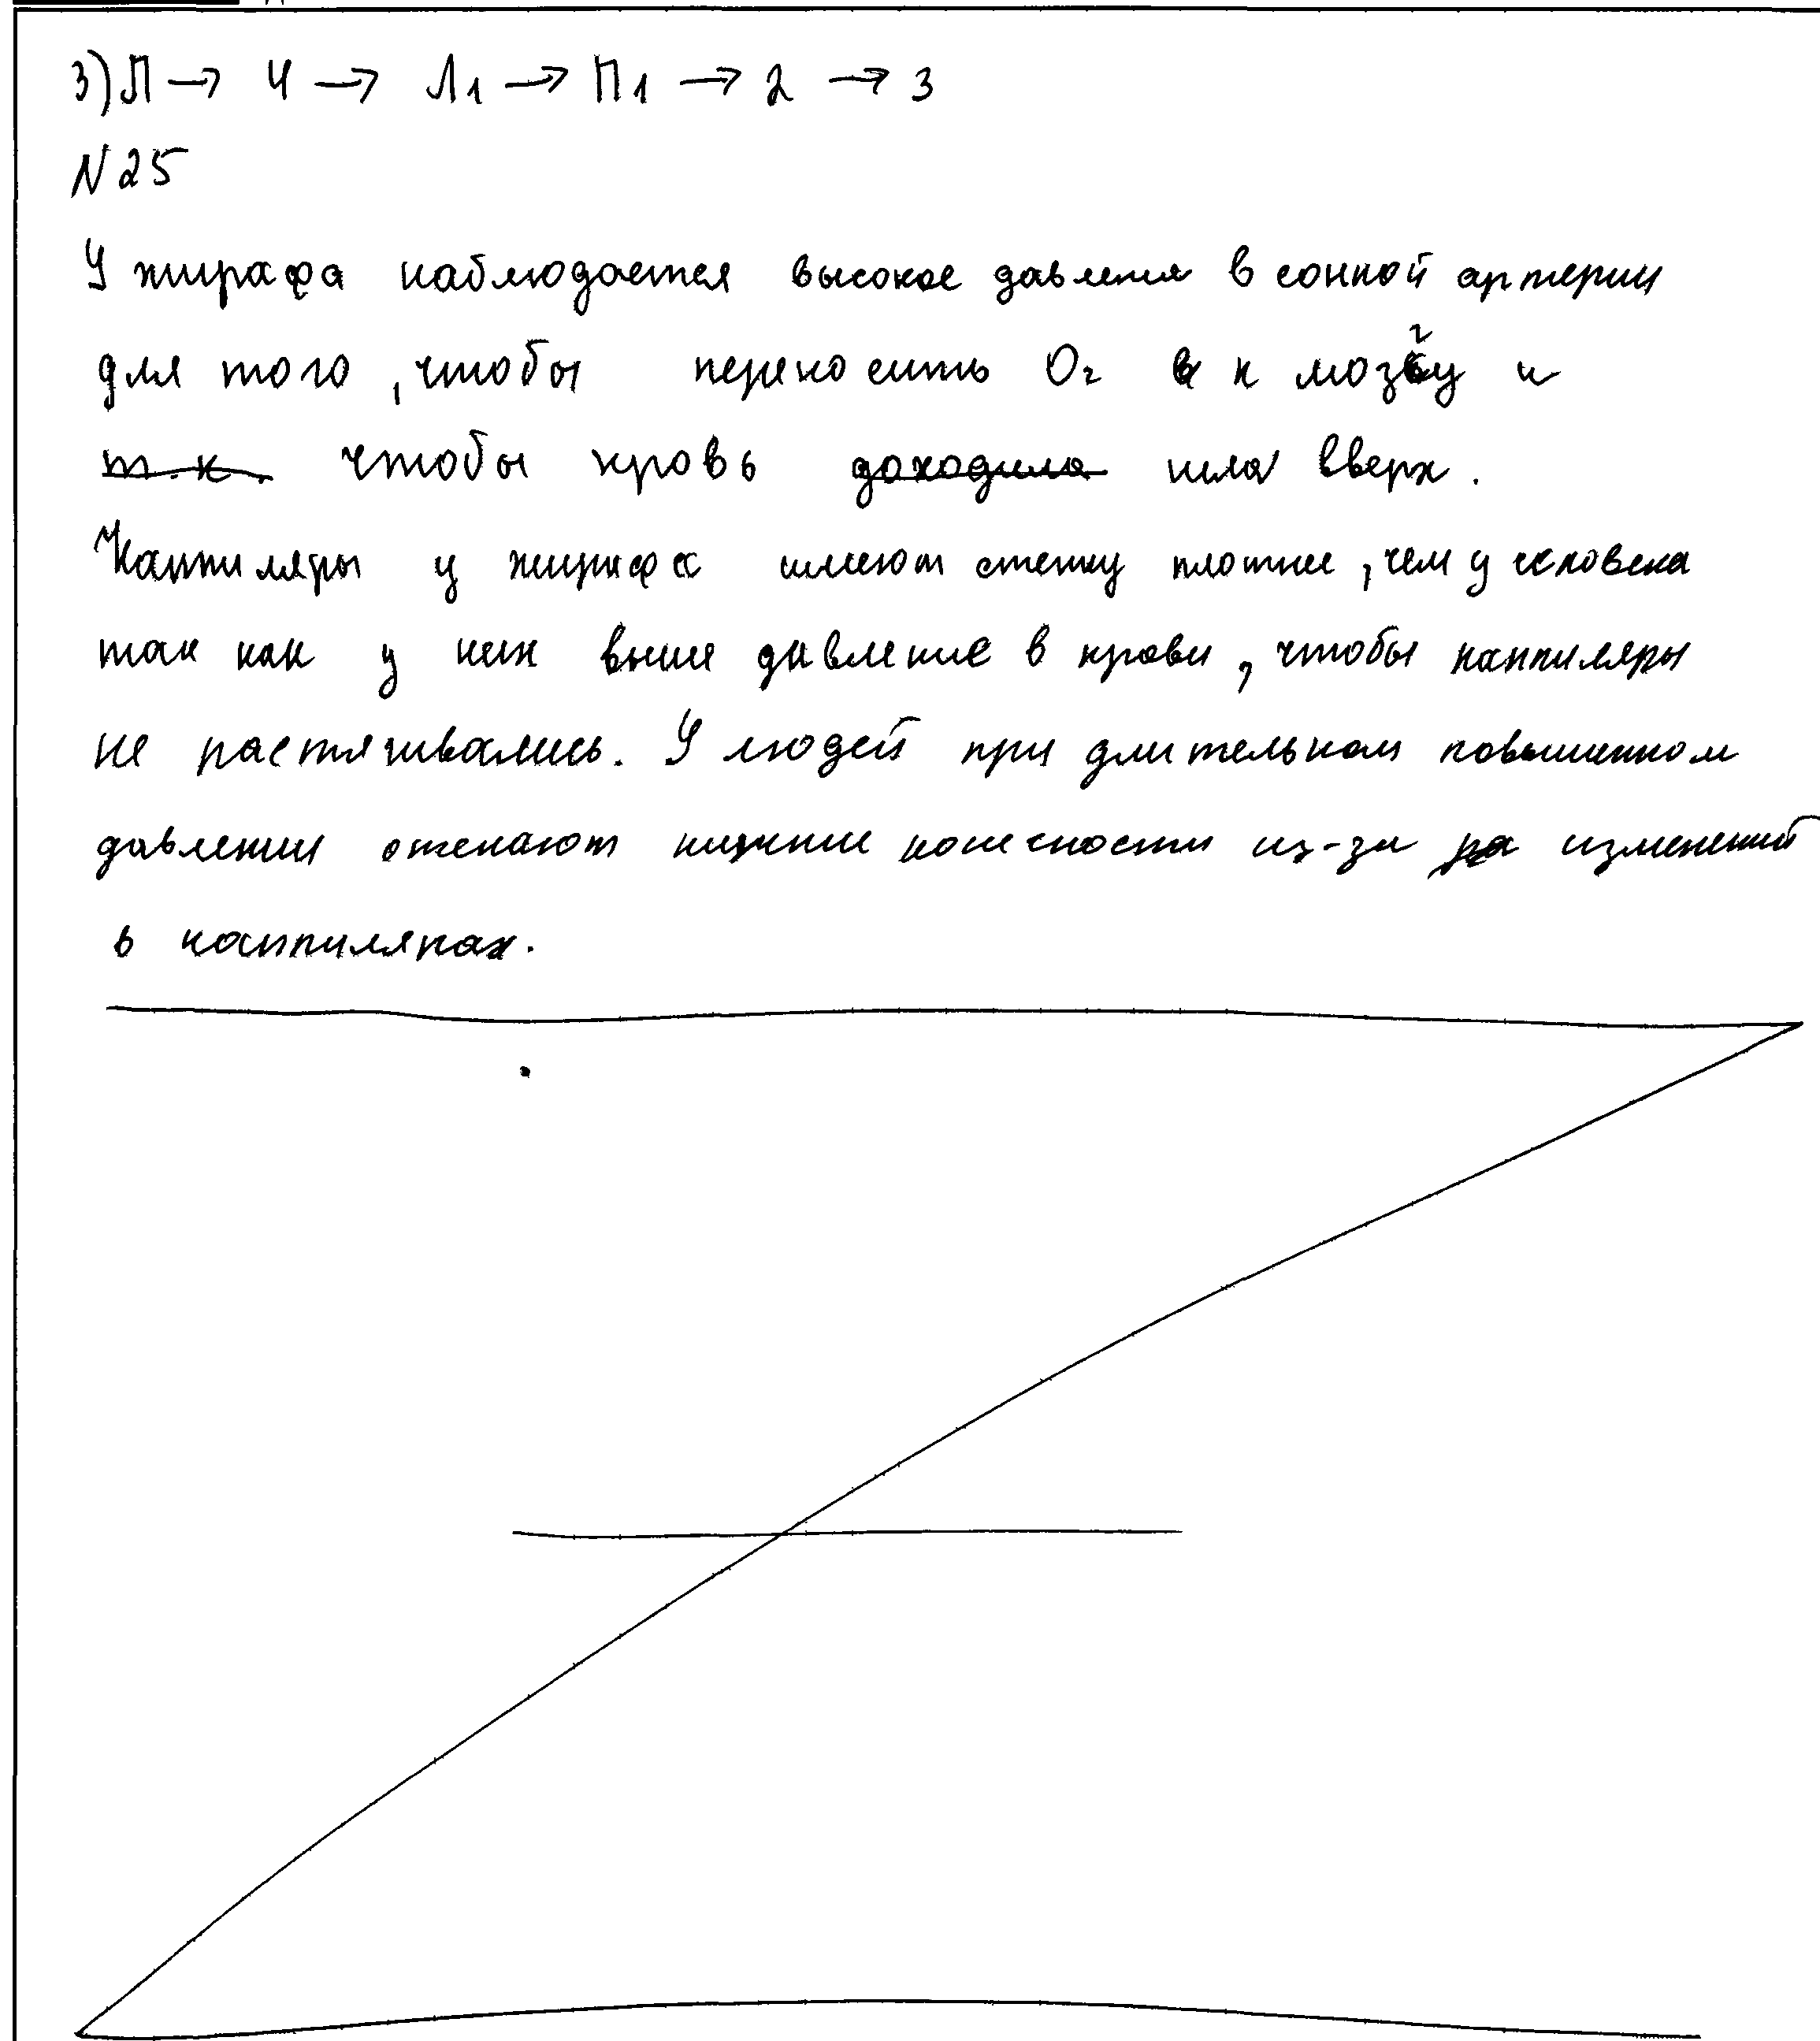 3) Л → 4 → Л1 → П1 → 2 → 3
N25
У жирафа наблюдается высокое давления в сонной артерии
для того, чтобы переносить O2 к мозгу и
т.к. чтобы кровь доходила шла вверх.
Капиляры у жирафа имеют стенку плотнее, чем у человека
так как у них выше давление в крови, чтобы капиляры
не растягивались. У людей при длительном повышенном
давлении отекают нижние конечности из-за изменений
в капилярах.